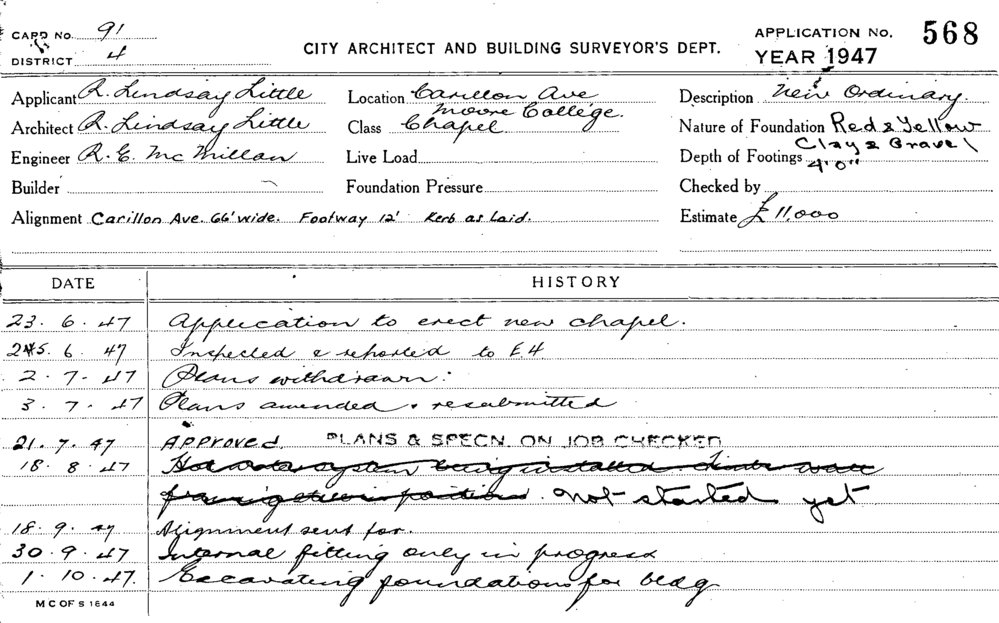 CARD No. 91
DISTRICT 4
CITY ARCHITECT AND BUILDING SURVEYOR'S DEPT.
APPLICATION No. 568
YEAR 1947
Applicant R. Lindsay Little
Architect R. Lindsay Little
Engineer R. E. McMillan
Builder
Alignment Carillon Ave. 66' wide. Footway 12' Kerb as Laid.
Location Carillon Ave
Moore College.
Class Chapel
Live Load
Foundation Pressure
Description New Ordinary.
Nature of Foundation Red & Yellow
Clay & Gravel
Depth of Footings 4'0"
Checked by
Estimate £11,000
DATE HISTORY
23. 6. 47 Application to erect new chapel.
25. 6. 47 Inspected & reported to E4
2. 7. 47 Plans withdrawn.
3. 7. 47 Plans amended & resubmitted
21. 7. 47 Approved. PLANS & SPECN. ON JOB CHECKED
18. 8. 47 Hot water system being installed
not started yet
18. 9. 47 Alignment sent for.
30. 9. 47 Internal fitting only in progress
1. 10. 47. Excavating foundations for bldg
M C OF S 1844